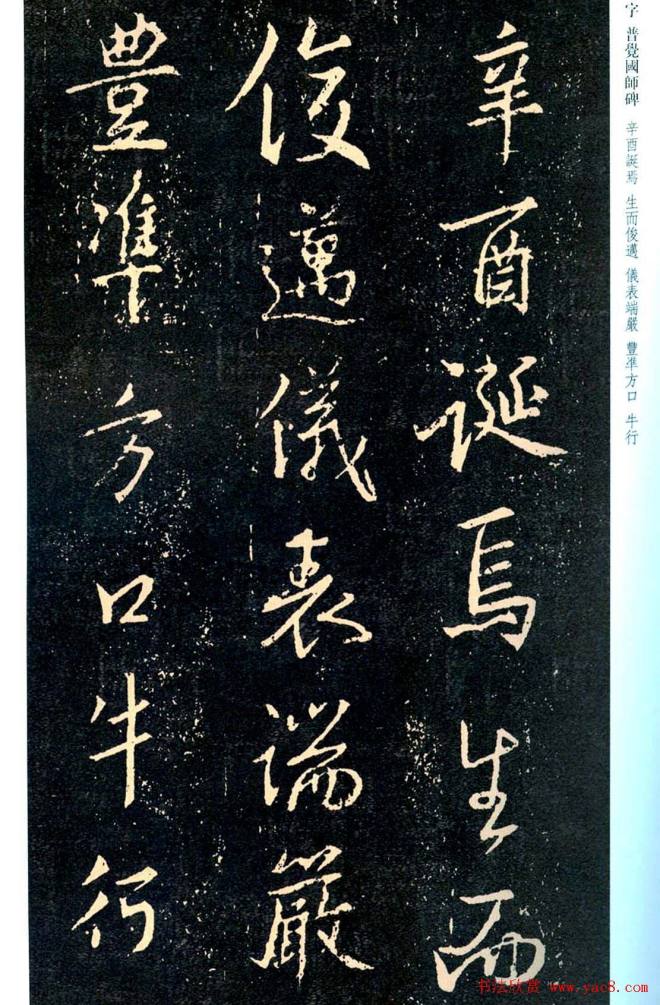 字 普覺國師碑 辛酉誕焉 生而俊邁 儀表端嚴 豐準方口 牛行
辛酉誕焉生而
俊邁儀表端嚴
豐準方口牛行
书法欣赏 www.yac8.com